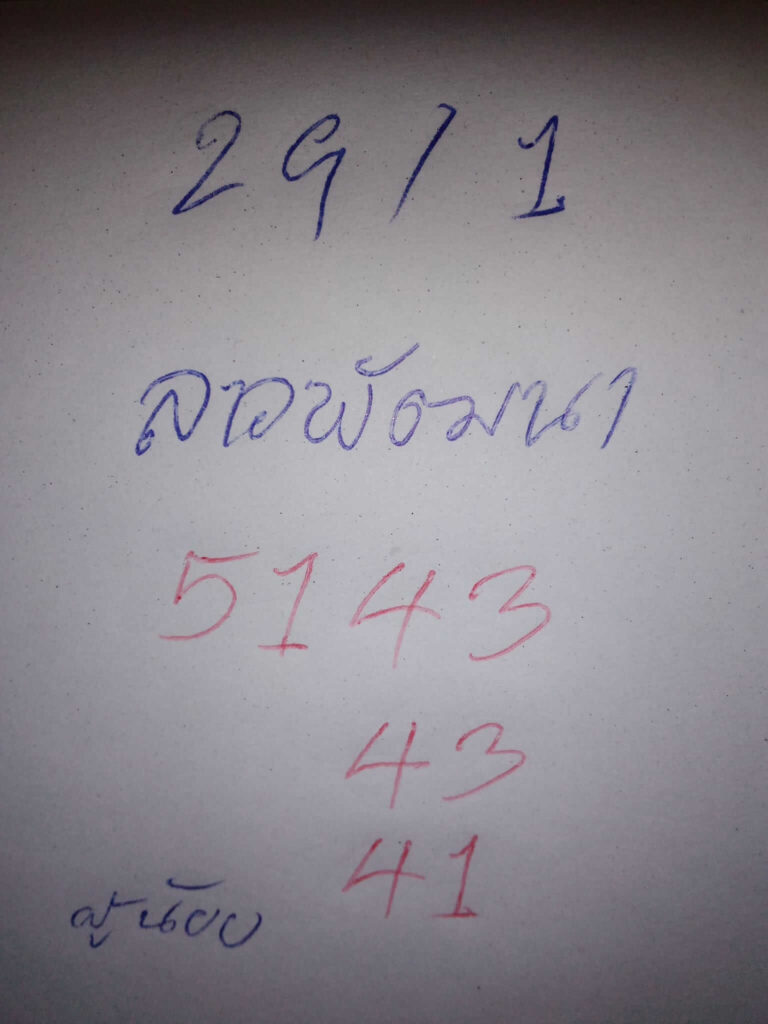 29/1
ลาวพัฒนา
5143
43
41
ผู้น้อย